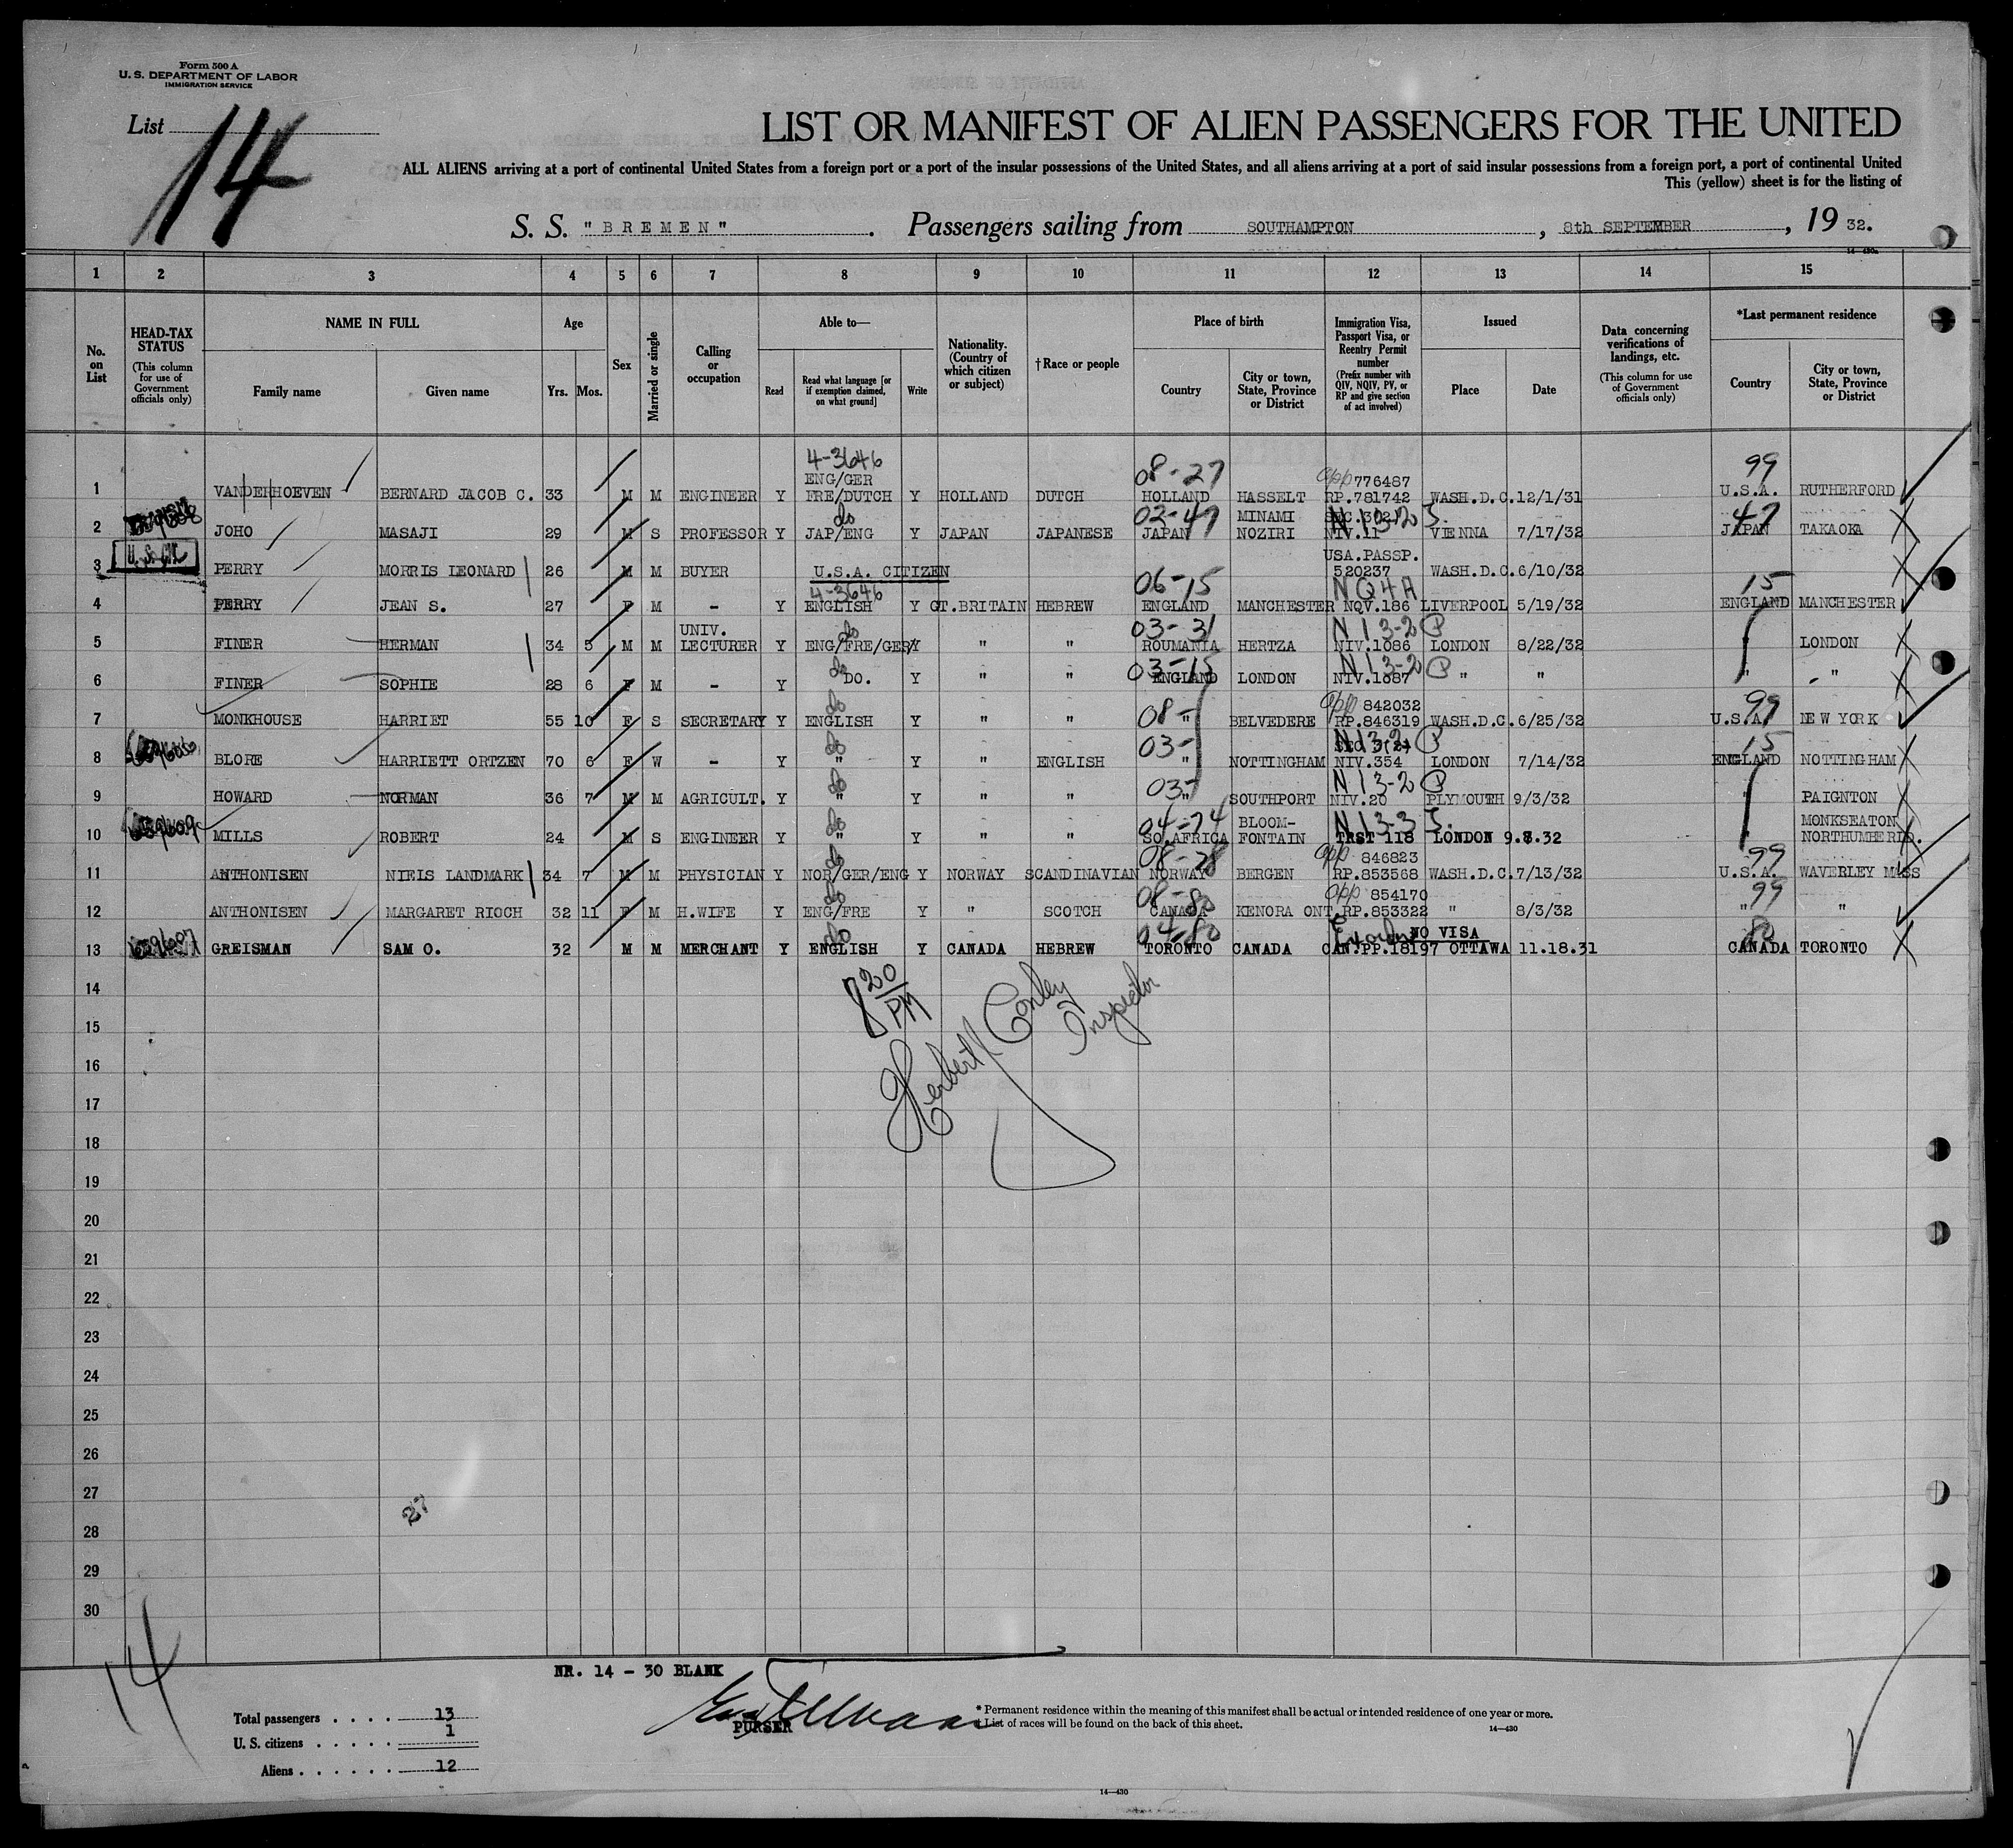 Form 500 A
U. S. DEPARTMENT OF LABOR
IMMIGRATION SERVICE
List 14
LIST OR MANIFEST OF ALIEN PASSENGERS FOR THE UNITED
ALL ALIENS arriving at a port of continental United States from a foreign port or a port of the insular possessions of the United States, and all aliens arriving at a port of said insular possessions from a foreign port, a port of continental United
This (yellow) sheet is for the listing of
S. S. "BREMEN". Passengers sailing from SOUTHAMPTON, 8th SEPTEMBER, 1932.
14—430a
1 2 3 4 5 6 7 8 9 10 11 12 13 14 15
No. on List
HEAD-TAX STATUS (This column for use of Government officials only)
NAME IN FULL Family name Given name
Age Yrs. Mos.
Sex
Married or single
Calling or occupation
Able to— Read Read what language [or if exemption claimed, on what ground] Write
Nationality. (Country of which citizen or subject)
†Race or people
Place of birth Country City or town, State, Province or District
Immigration Visa, Passport Visa, or Reentry Permit number (Prefix number with QIV, NQIV, PV, or RP and give section of act involved)
Issued Place Date
Data concerning verifications of landings, etc. (This column for use of Government officials only)
*Last permanent residence Country City or town, State, Province or District
4-3646 08-27 99
ENG/GER app 776487
1 VANDERHOEVEN BERNARD JACOB C. 33 M M ENGINEER Y FRE/DUTCH Y HOLLAND DUTCH HOLLAND HASSELT RP.781742 WASH.D.C. 12/1/31 U.S.A. RUTHERFORD
do 02-47 MINAMI N 13-2 47
2 JOHO MASAJI 29 M S PROFESSOR Y JAP/ENG Y JAPAN JAPANESE JAPAN NOZIRI NIV.11 VIENNA 7/17/32 JAPAN TAKAOKA
U. S. CIT. USA.PASSP.
3 PERRY MORRIS LEONARD 26 M M BUYER U.S.A. CITIZEN 520237 WASH.D.C. 6/10/32
4-3646 06-15 NQ4A 15
4 PERRY JEAN S. 27 F M - Y ENGLISH Y GT.BRITAIN HEBREW ENGLAND MANCHESTER NQV.186 LIVERPOOL 5/19/32 ENGLAND MANCHESTER
UNIV. do 03-31 N 13-2 P
5 FINER HERMAN 34 5 M M LECTURER Y ENG/FRE/GER Y " " ROUMANIA HERTZA NIV.1086 LONDON 8/22/32 " LONDON
do 03-15 N 13-2 P
6 FINER SOPHIE 28 6 F M - Y DO. Y " " ENGLAND LONDON NIV.1087 " " " "
do 08- app 842032 99
7 MONKHOUSE HARRIET 55 10 F S SECRETARY Y ENGLISH Y " " " BELVEDERE RP.846319 WASH.D.C. 6/25/32 U.S.A. NEW YORK
do 03- N 13-2 P 15
8 BLORE HARRIETT ORTZEN 70 6 F W - Y " Y " ENGLISH " NOTTINGHAM NIV.354 LONDON 7/14/32 ENGLAND NOTTINGHAM
do 03- N 13-2 P
9 HOWARD NORMAN 36 7 M M AGRICULT. Y " Y " " " SOUTHPORT NIV.20 PLYMOUTH 9/3/32 " PAIGNTON
do 04-74 BLOOM- N 13-3 MONKSEATON
10 MILLS ROBERT 24 M S ENGINEER Y " Y " " SO.AFRICA FONTAIN TRST 118 LONDON 9.8.32 " NORTHUMBERLD.
do 08-28 app 846823 99
11 ANTHONISEN NIELS LANDMARK 34 7 M M PHYSICIAN Y NOR/GER/ENG Y NORWAY SCANDINAVIAN NORWAY BERGEN RP.853568 WASH.D.C. 7/13/32 U.S.A. WAVERLEY MASS
do 08-80 app 854170 99
12 ANTHONISEN MARGARET RIOCH 32 11 F M H.WIFE Y ENG/FRE Y " SCOTCH CANADA KENORA ONT. RP.853322 " 8/3/32 " "
do 04-80 NO VISA 80
13 GREISMAN SAM O. 32 M M MERCHANT Y ENGLISH Y CANADA HEBREW TORONTO CANADA CAN.PP.18197 OTTAWA 11.18.31 CANADA TORONTO
14
15
16
17
18
19
20
21
22
23
24
25
26
27
28
29
30
8 20/PM
Herbert Conley
Inspector
27
14
NR. 14 - 30 BLANK
PURSER
Total passengers . . . . 13
U. S. citizens . . . . . 1
Aliens . . . . . . 12
* Permanent residence within the meaning of this manifest shall be actual or intended residence of one year or more.
† List of races will be found on the back of this sheet.
14—430
14—430